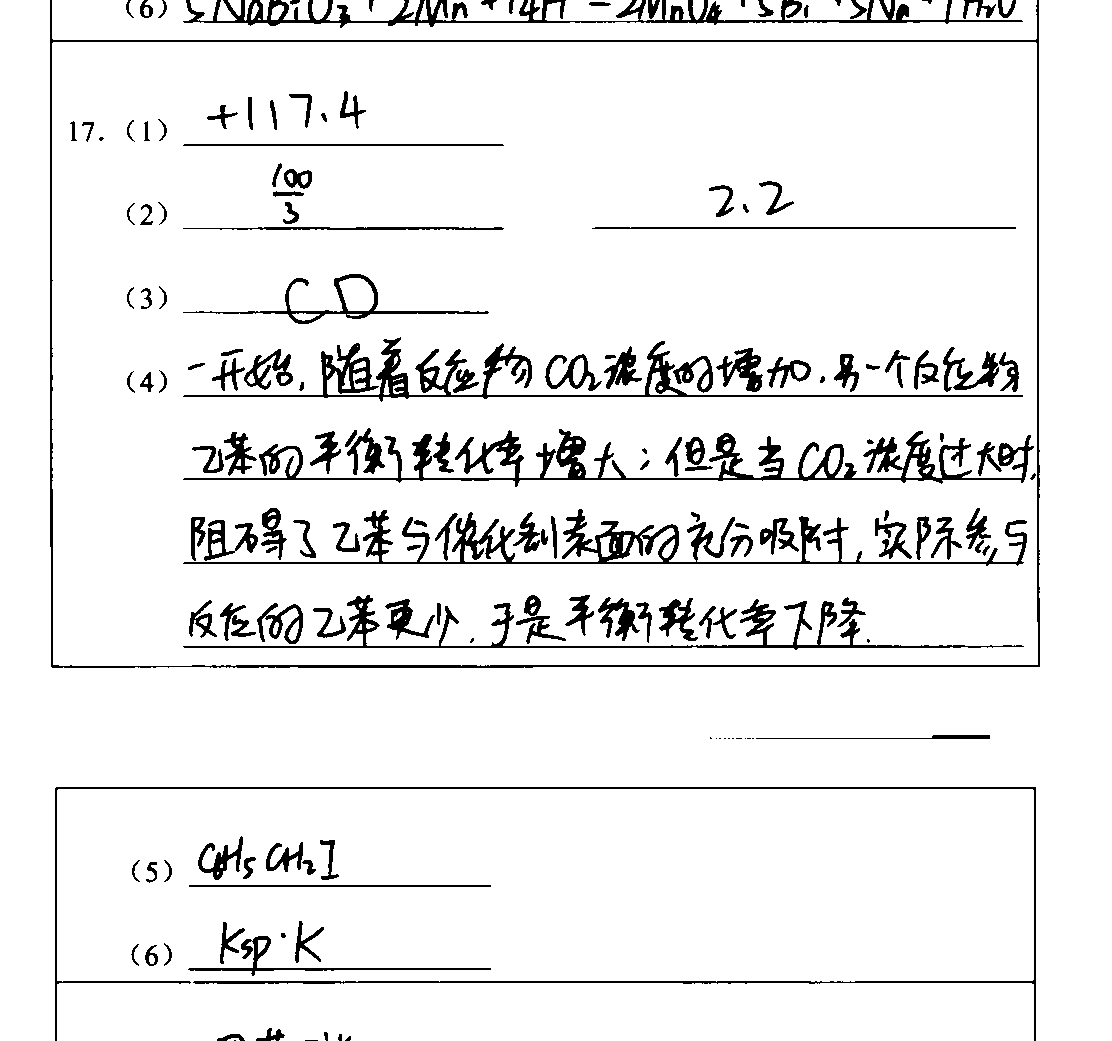 (6) 5NaBiO₃+2Mn²⁺+14H⁺=2MnO₄⁻+5Bi³⁺+5Na⁺+7H₂O
17.（1）+117.4
（2）100/3 2.2
（3）CD
（4）一开始，随着反应物CO₂浓度的增加，另一个反应物
乙苯的平衡转化率增大；但是当CO₂浓度过大时，
阻碍了乙苯与催化剂表面的充分吸附，实际参与
反应的乙苯更少，于是平衡转化率下降.
（5）C₆H₅CH₂I
（6）Ksp·K